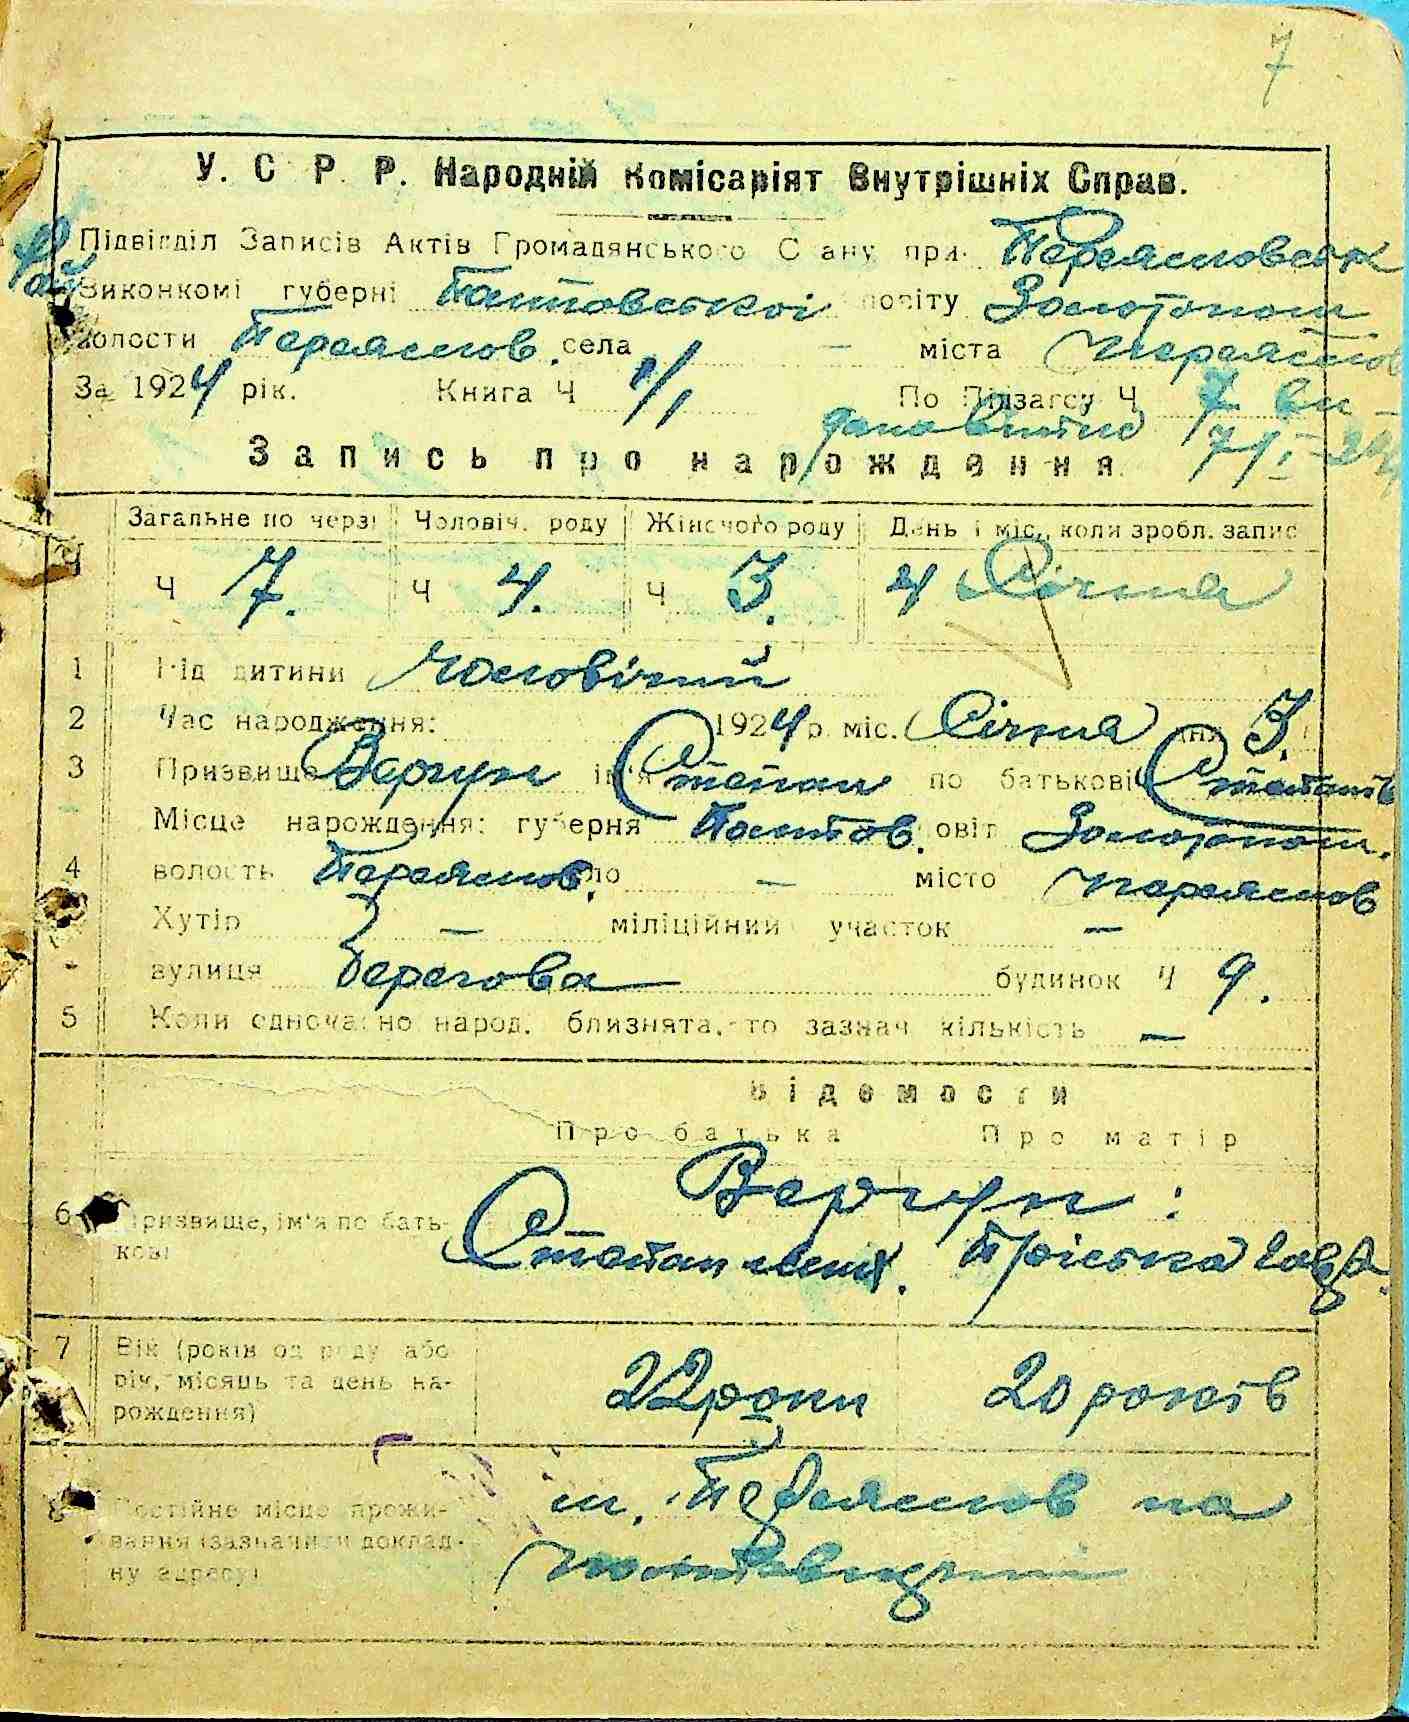 7
У. С Р. Р. Народній Комісаріят Внутрішніх Справ.
Підвідділ Записів Актів Громадянського Стану при Переясловськ
Рай Виконкомі губерні Полтовської повіту Золотонош
волости Переяслов. села — міста Переяслов
За 1924 рік. Книга Ч 1/1 По Підзагсу Ч 7 ви-
Запись про нарождення
Загальне по черзі Чоловіч. роду Жіночого роду День і міс., коли зробл. запис
Ч Ч 7. Ч 4. Ч 3. 4 Січня
1 Рід дитини Чоловічий
2 Час народження: 1924 р. міс. Січня дня 3.
3 Призвище Вергун ім'я Степан по батькові Степанів
Місце нарождення: губерня Полтов. повіт Золотонош.
4 волость Переяслов. село — місто Переяслов
Хутір — міліційний участок —
вулиця Берегова будинок Ч 9.
5 Коли одночасно народ. близнята, то зазнач кількість —
Відомости
Про батька Про матір
Вергун:
6 Призвище, ім'я по бать-кові Степан Пріська
7 Вік (років од роду або рік, місяць та день на-рождення) 22 роки 20 років
8 Постійне місце прожи-вання (зазначити доклад-ну адресу) м. Переяслов на
Полтавщині